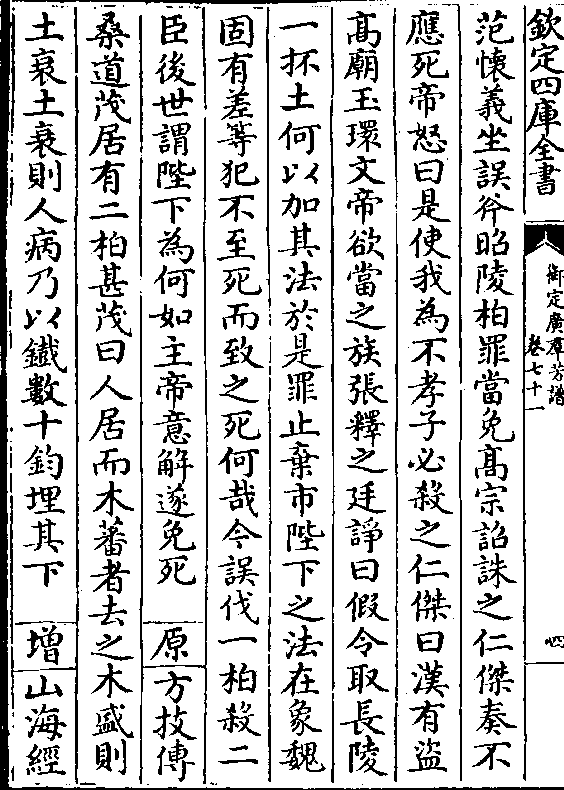 欽定四庫全書
御定廣羣芳譜
卷七十一
四
范懷義坐誤斧昭陵柏罪當免髙宗詔誅之仁傑奏不
應死帝怒曰是使我為不孝子必殺之仁傑曰漢有盜
髙廟玉環文帝欲當之族張釋之廷諍曰假令取長陵
一抔土何以加其法於是罪止棄市陛下之法在象魏
固有差等犯不至死而致之死何哉今誤伐一柏殺二
臣後世謂陛下為何如主帝意解遂免死 原 方技傳
桑道茂居有二柏甚茂曰人居而木蕃者去之木盛則
土衰土衰則人病乃以鐵數十鈞埋其下 增 山海經